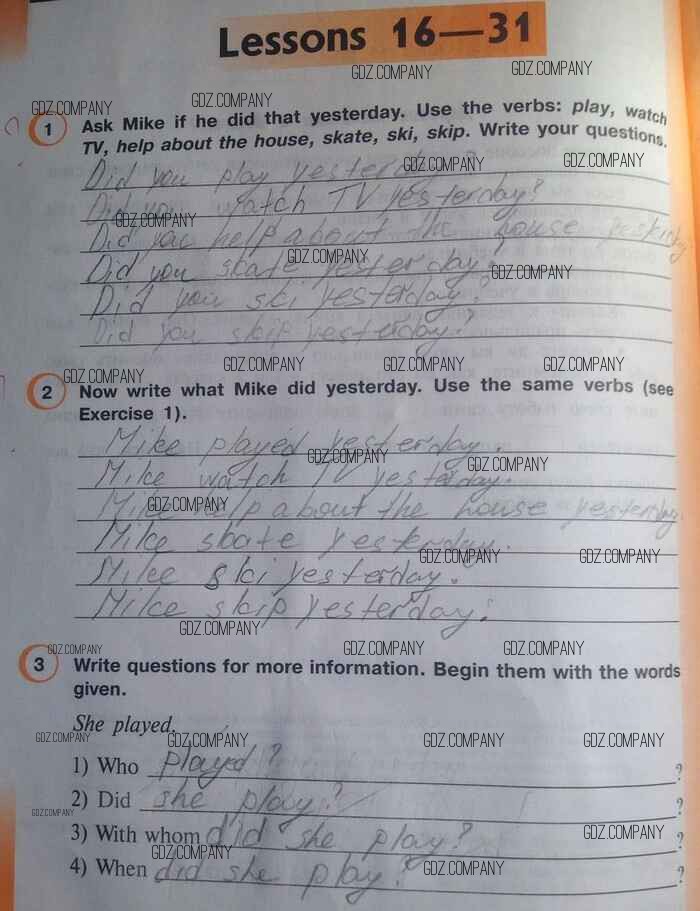 Lessons 16—31
GDZ.COMPANY GDZ.COMPANY
GDZ.COMPANY GDZ.COMPANY
1 Ask Mike if he did that yesterday. Use the verbs: play, watch
TV, help about the house, skate, ski, skip. Write your questions.
GDZ.COMPANY GDZ.COMPANY
Did you play yesterday?
Did you watch TV yesterday?
GDZ.COMPANY
Did you help about the house
GDZ.COMPANY GDZ.COMPANY
Did you skate yesterday?
Did you ski yesterday?
Did you skip yesterday?
GDZ.COMPANY GDZ.COMPANY GDZ.COMPANY GDZ.COMPANY
2 Now write what Mike did yesterday. Use the same verbs (see
Exercise 1).
Mike played yesterday.
GDZ.COMPANY GDZ.COMPANY
Mike watch TV yesterday.
GDZ.COMPANY
Mike help about the house yesterday.
Mike skate yesterday.
GDZ.COMPANY GDZ.COMPANY
Mike ski yesterday.
Mike skip yesterday.
GDZ.COMPANY
GDZ.COMPANY GDZ.COMPANY GDZ.COMPANY
3 Write questions for more information. Begin them with the words
given.
She played.
GDZ.COMPANY GDZ.COMPANY GDZ.COMPANY GDZ.COMPANY
1) Who played? ?
2) Did she play? ?
GDZ.COMPANY
3) With whom did she play? ?
GDZ.COMPANY GDZ.COMPANY
4) When did she play? ?
GDZ.COMPANY